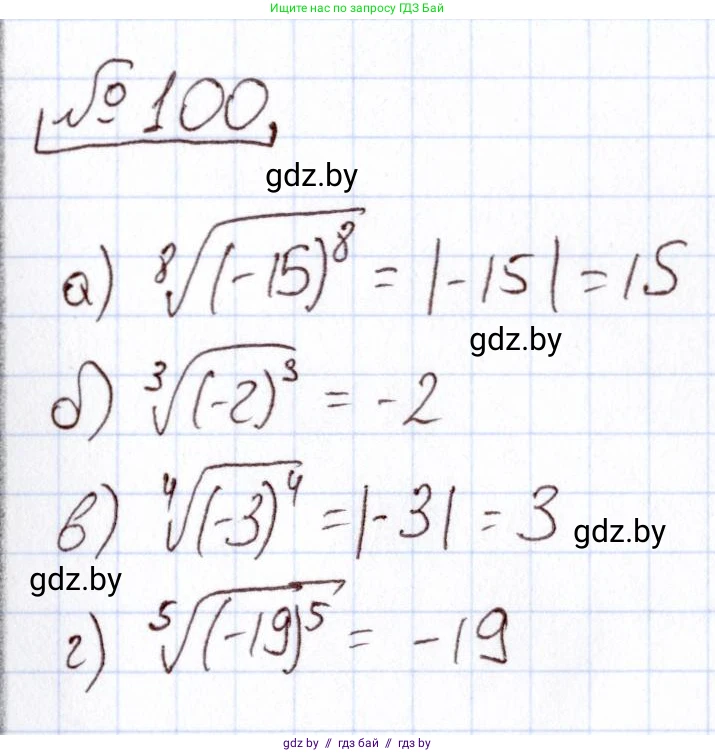 Ищите нас по запросу ГДЗ Бай
№ 100.
gdz.by
а) ⁸√(-15)⁸ = |-15| = 15
gdz.by
б) ³√(-2)³ = -2
в) ⁴√(-3)⁴ = |-3| = 3
gdz.by
gdz.by
г) ⁵√(-19)⁵ = -19
gdz.by // гдз бай // гдз.бай